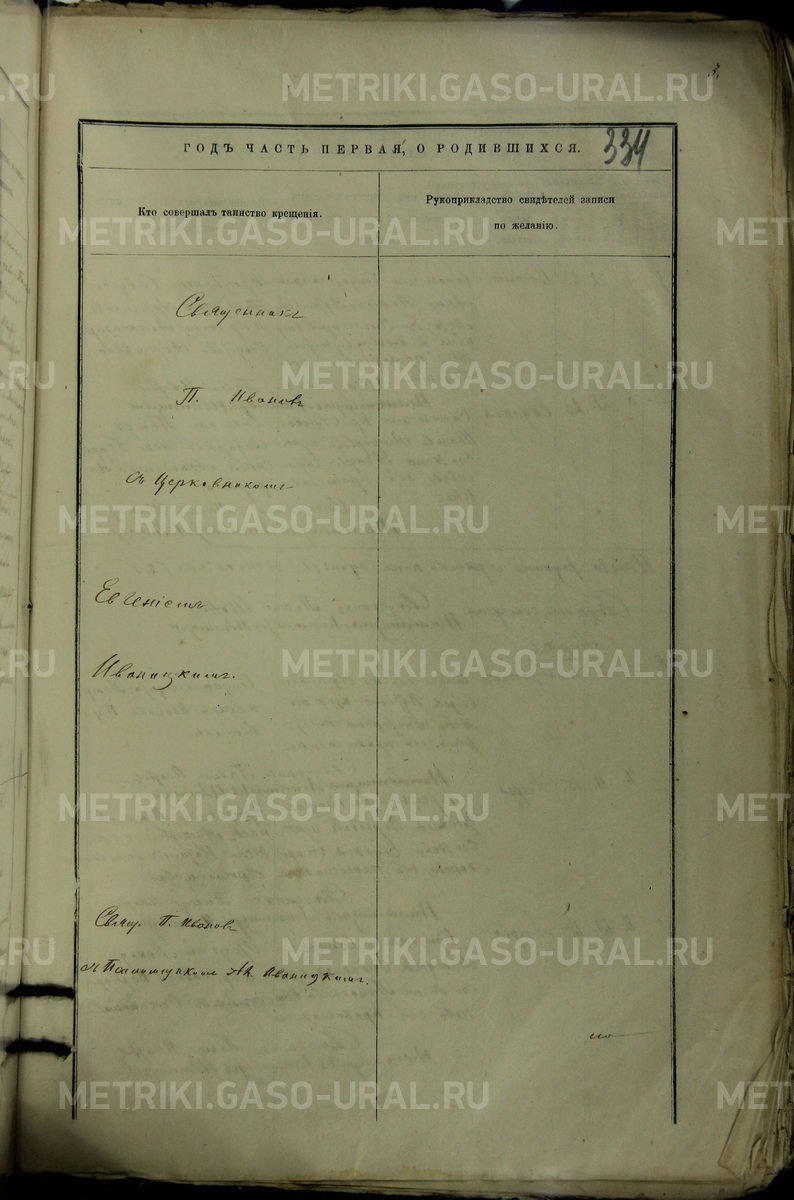 3.
ГОДЪ ЧАСТЬ ПЕРВАЯ, О РОДИВШИХСЯ.
334
Кто совершалъ таинство крещенія.
Рукоприкладство свидѣтелей записи
по желанію.
Священникъ
П. Ивановъ
съ Церковникомъ
Евгеніемъ
Иваницкимъ.
Свящ. П. Ивановъ
съ Псаломщикомъ Иваницкимъ.
METRIKI.GASO-URAL.RU